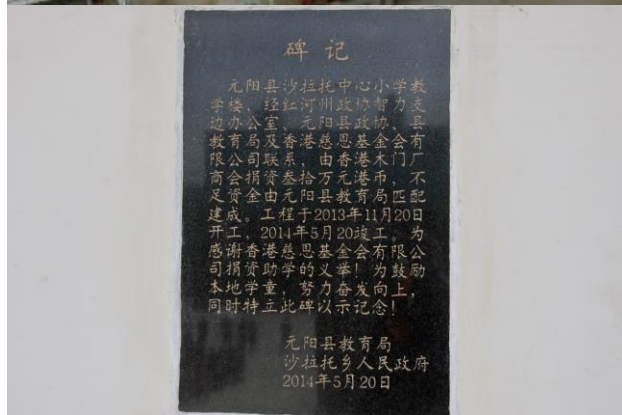 碑记
元阳县沙拉托中心小学教
学楼，经红河州政协智力支
边办公室，元阳县政协，县
教育局及香港慈恩基金会有
限公司联系，由香港木门厂
商会捐资叁拾万元港币，不
足资金由元阳县教育局匹配
建成。工程于2013年11月20日
开工，2014年5月20竣工。为
感谢香港慈恩基金会有限公
司捐资助学的义举！为鼓励
本地学童，努力奋发向上，
同时特立此碑以示记念！
元阳县教育局
沙拉托乡人民政府
2014年5月20日